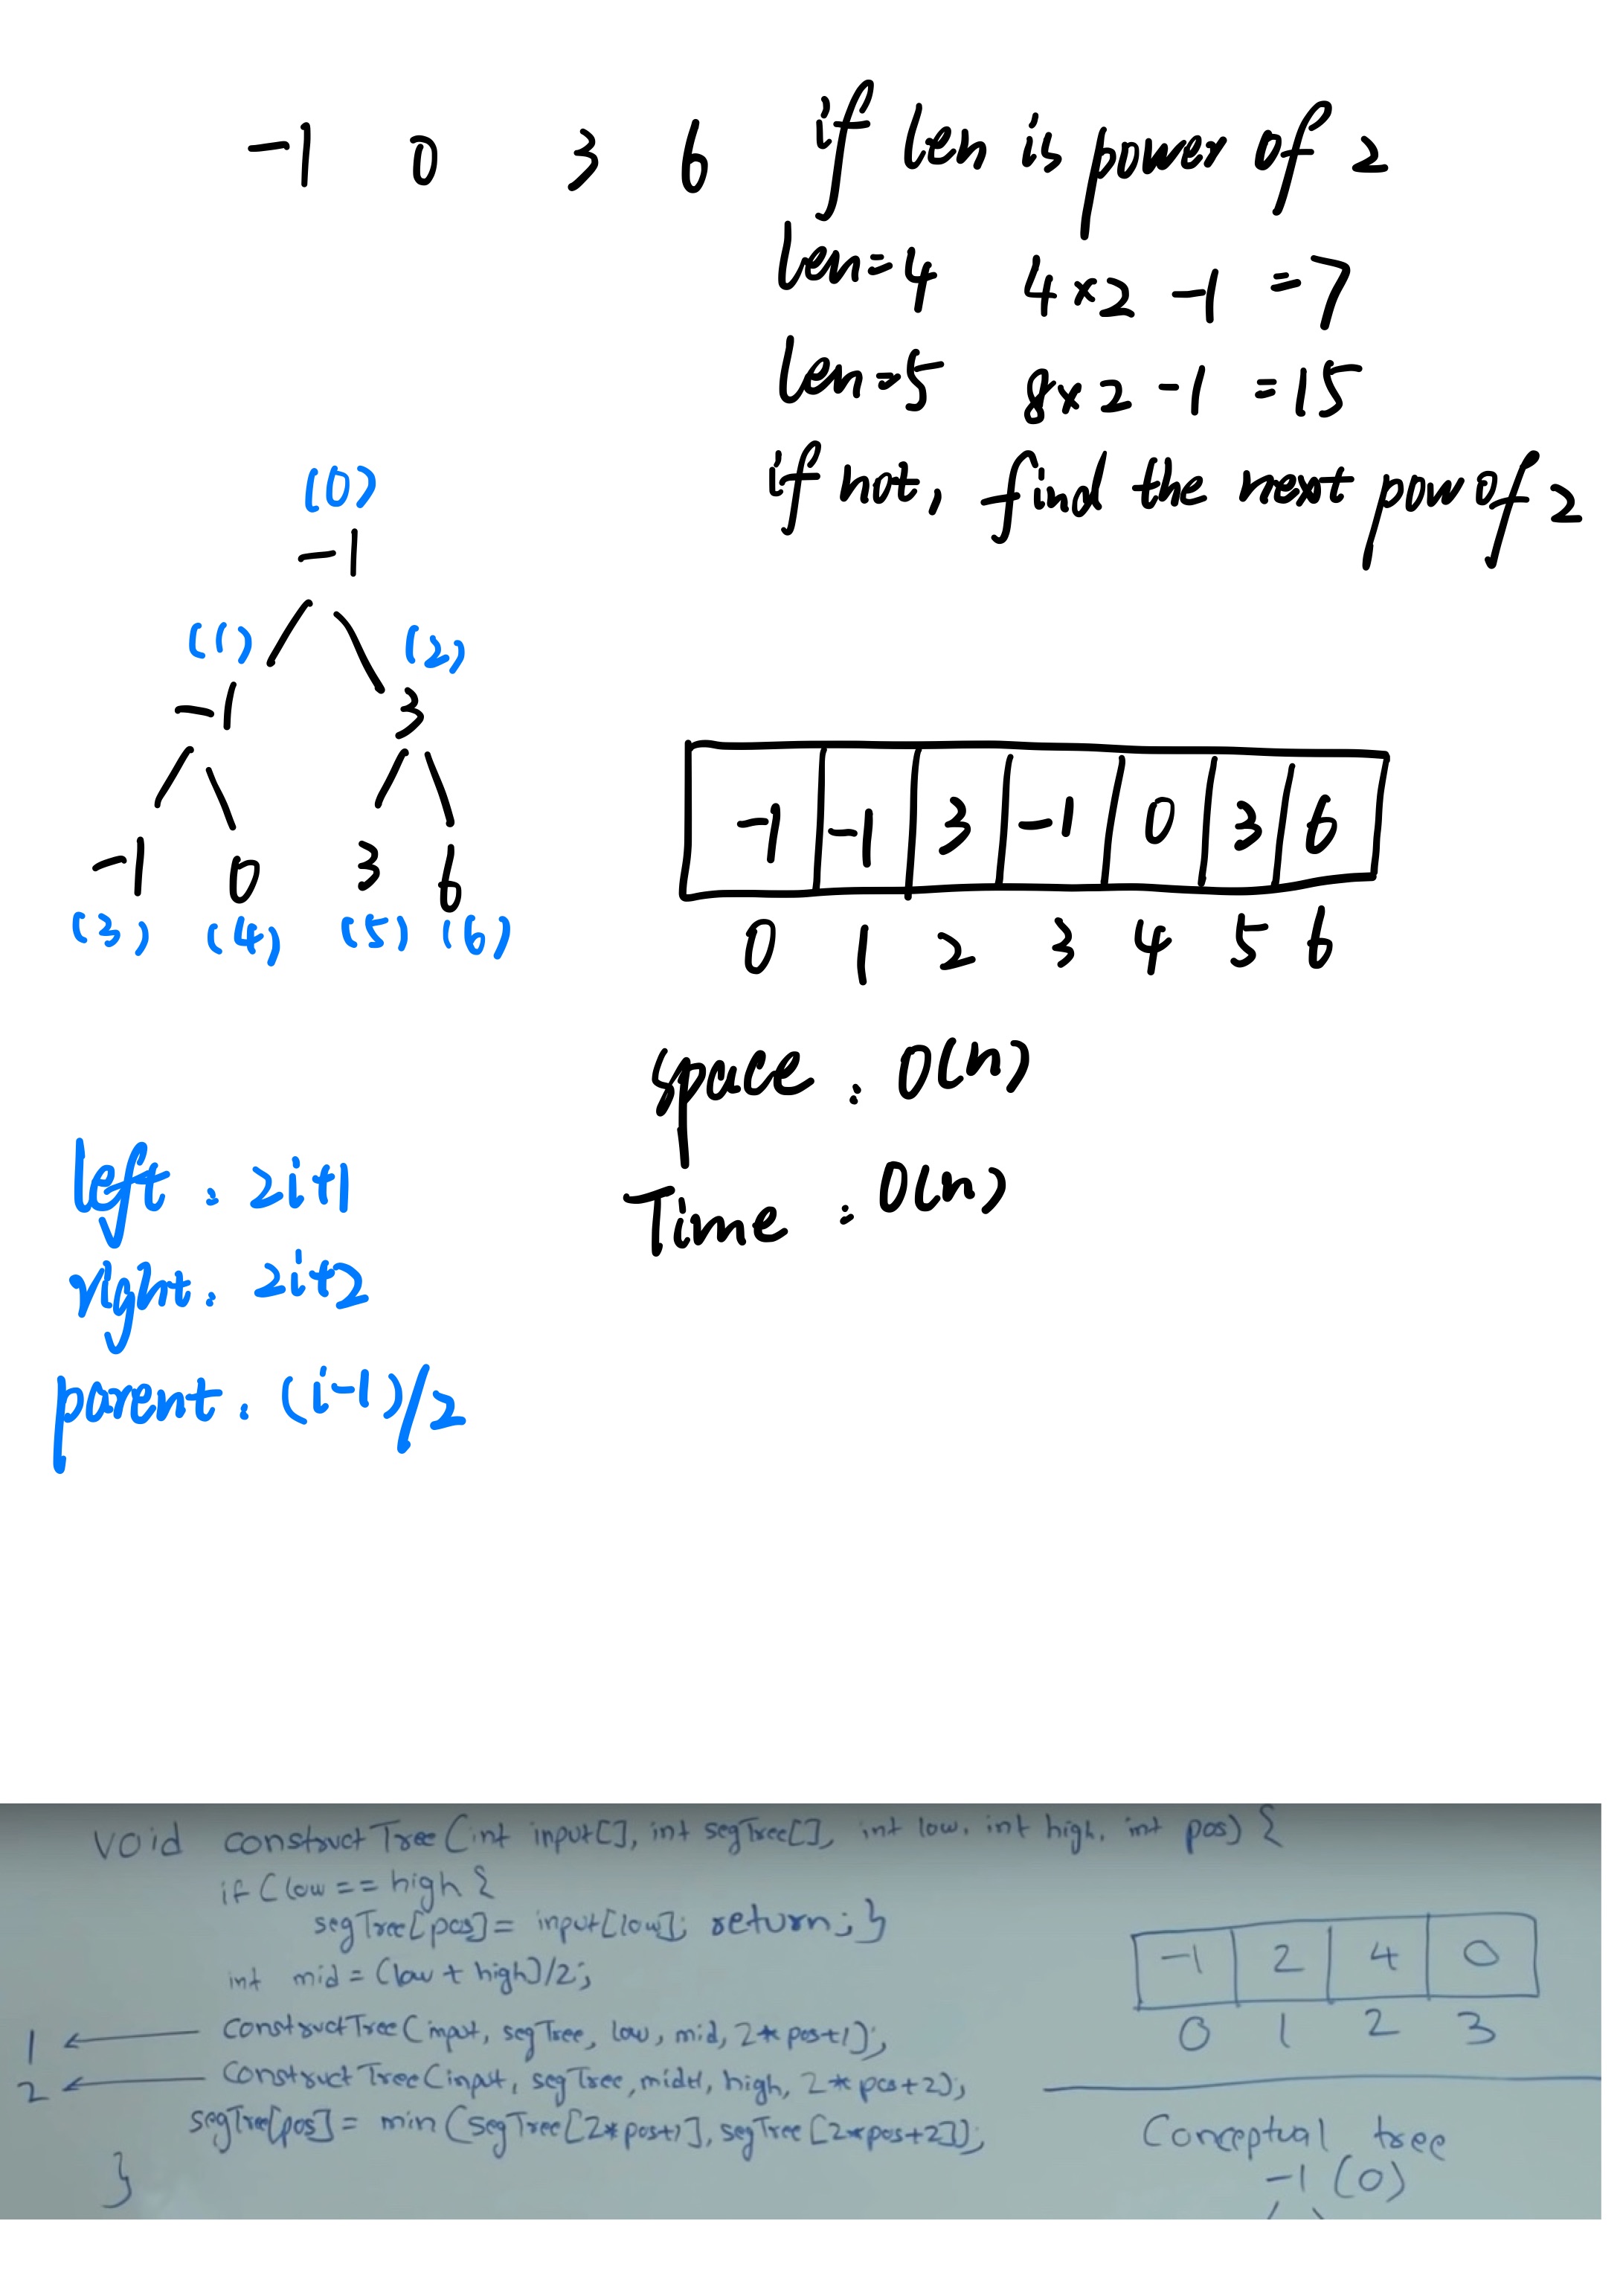 -1 0 3 6 if len is power of 2
len=4 4×2 -1 =7
len=5 8×2 -1 =15
if not, find the next pow of 2
(0)
-1
(1) (2)
-1 3
-1 0 3 6
(3) (4) (5) (6)
-1 -1 3 -1 0 3 6
0 1 2 3 4 5 6
space: O(n)
Time: O(n)
left: 2i+1
right: 2i+2
parent: (i-1)/2
void constructTree(int input[], int segTree[], int low, int high, int pos) {
if (low == high {
segTree[pos] = input[low]; return; }
int mid = (low + high)/2;
1 ← constructTree(input, segTree, low, mid, 2*pos+1);
2 ← constructTree(input, segTree, mid+1, high, 2*pos+2);
segTree[pos] = min(segTree[2*pos+1], segTree[2*pos+2]);
}
-1 2 4 0
0 1 2 3
Conceptual tree
-1 (0)